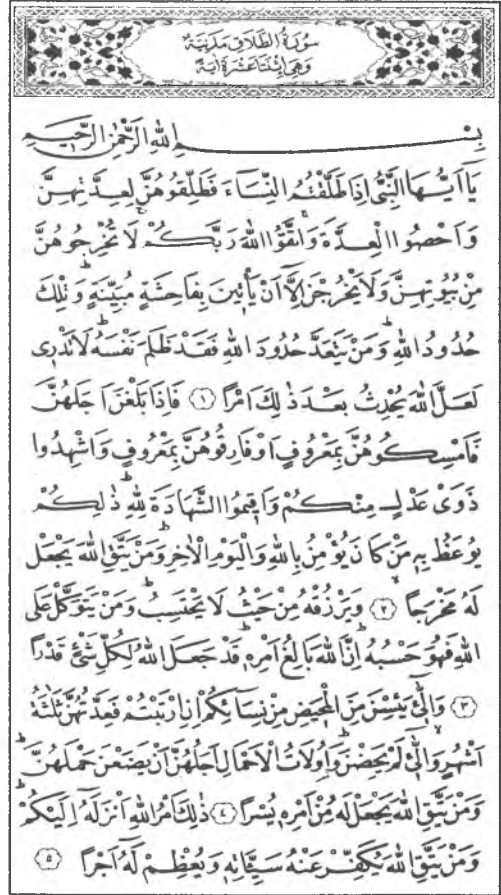 سُورَةُ الطَّلَاقِ مَدَنِيَّةٌ
وَهِيَ اِثْنَتَا عَشْرَةَ اٰيَةً
بِسْمِ اللّٰهِ الرَّحْمٰنِ الرَّح۪يمِ
يَٓا اَيُّهَا النَّبِيُّ اِذَا طَلَّقْتُمُ النِّسَٓاءَ فَطَلِّقُوهُنَّ لِعِدَّتِهِنَّ
وَاَحْصُوا الْعِدَّةَ وَاتَّقُوا اللّٰهَ رَبَّكُمْ لَا تُخْرِجُوهُنَّ
مِنْ بُيُوتِهِنَّ وَلَا يَخْرُجْنَ اِلَّٓا اَنْ يَأْت۪ينَ بِفَاحِشَةٍ مُبَيِّنَةٍ وَتِلْكَ
حُدُودُ اللّٰهِ وَمَنْ يَتَعَدَّ حُدُودَ اللّٰهِ فَقَدْ ظَلَمَ نَفْسَهُ لَا تَدْر۪ي
لَعَلَّ اللّٰهَ يُحْدِثُ بَعْدَ ذٰلِكَ اَمْرًا ﴿١﴾ فَاِذَا بَلَغْنَ اَجَلَهُنَّ
فَاَمْسِكُوهُنَّ بِمَعْرُوفٍ اَوْ فَارِقُوهُنَّ بِمَعْرُوفٍ وَاَشْهِدُوا
ذَوَيْ عَدْلٍ مِنْكُمْ وَاَق۪يمُوا الشَّهَادَةَ لِلّٰهِ ذٰلِكُمْ
يُوعَظُ بِه۪ مَنْ كَانَ يُؤْمِنُ بِاللّٰهِ وَالْيَوْمِ الْاٰخِرِ وَمَنْ يَتَّقِ اللّٰهَ يَجْعَلْ
لَهُ مَخْرَجًا ﴿٢﴾ وَيَرْزُقْهُ مِنْ حَيْثُ لَا يَحْتَسِبُ وَمَنْ يَتَوَكَّلْ عَلَى
اللّٰهِ فَهُوَ حَسْبُهُ اِنَّ اللّٰهَ بَالِغُ اَمْرِه۪ قَدْ جَعَلَ اللّٰهُ لِكُلِّ شَيْءٍ قَدْرًا
﴿٣﴾ وَالّٰٓـ۪ٔي يَئِسْنَ مِنَ الْمَح۪يضِ مِنْ نِسَٓائِكُمْ اِنِ ارْتَبْتُمْ فَعِدَّتُهُنَّ ثَلٰثَةُ
اَشْهُرٍ وَالّٰٓـ۪ٔي لَمْ يَحِضْنَ وَاُولَاتُ الْاَحْمَالِ اَجَلُهُنَّ اَنْ يَضَعْنَ حَمْلَهُنَّ
وَمَنْ يَتَّقِ اللّٰهَ يَجْعَلْ لَهُ مِنْ اَمْرِه۪ يُسْرًا ﴿٤﴾ ذٰلِكَ اَمْرُ اللّٰهِ اَنْزَلَهُٓ اِلَيْكُمْ
وَمَنْ يَتَّقِ اللّٰهَ يُكَفِّرْ عَنْهُ سَيِّـَٔاتِه۪ وَيُعْظِمْ لَهُٓ اَجْرًا ﴿٥﴾